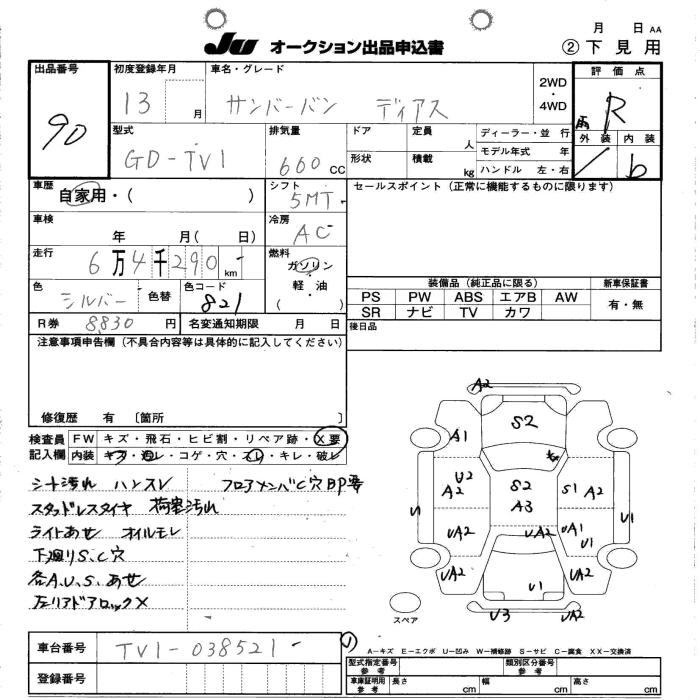 月 日 AA
JU オークション出品申込書 ②下見用
出品番号 90
初度登録年月 13 月
車名・グレード サンバーバン ディアス
2WD・4WD
評価点 R
外装 内装 b
型式 GD-TV1
排気量 660 cc
ドア 定員 人
形状 積載 kg
ディーラー・並行
モデル年式 年
ハンドル 左・右
車歴 自家用・( )
シフト 5MT
セールスポイント (正常に機能するものに限ります)
車検 年 月( 日)
冷房 AC
走行 6万4千290 km
燃料 ガソリン・軽油 ( )
色 シルバー 色替
色コード 821
装備品 (純正品に限る) 新車保証書
PS PW ABS エアB AW 有・無
SR ナビ TV カワ
R券 8,830 円 名変通知期限 月 日
後日品
注意事項申告欄 (不具合内容等は具体的に記入してください)
修復歴 有 〔箇所 〕
検査員記入欄 FW キズ・飛石・ヒビ割・リペア跡・X要
内装 キズ・汚レ・コゲ・穴・スレ・キレ・破レ
シート汚れ ハンスレ フロアメンバC穴BP要
スタッドレスタイヤ 荷室汚れ
ライトあせ オイルモレ
下廻りS、C穴
各A.U.S.あせ
左リアドアロックX
A2
S2
A1
U2
A2 S2 S1 A2
A3
U1 U1
UA2 UA2 UA1
U1
UA2 UA2
U1
U3 UA2
スペア
車台番号 TV1-038521
登録番号
A−キズ E−エクボ U−凹み W−補修跡 S−サビ C−腐食 XX−交換済
型式指定番号 参考 類別区分番号 参考
車庫証明用 参考 長さ cm 幅 cm 高さ cm